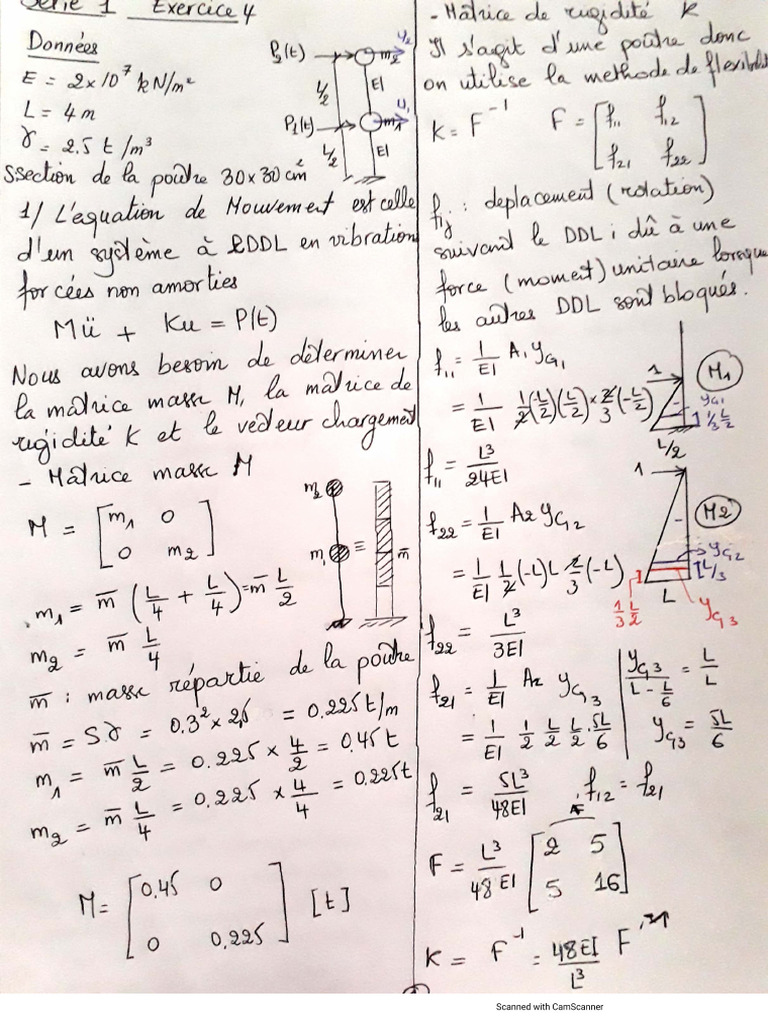 Série 1 Exercice 4
Données
E = 2×10⁷ kN/m²
L = 4 m
γ = 2.5 t/m³
Ssection de la poûtre 30×30 cm²
P₂(t) m₂ u₂
L/2 EI
P₁(t) m₁ u₁
L/2 EI
1/ L'equation de Mouvement est celle
d'un système à 2DDL en vibration
forcées non amorties
Mü + Ku = P(t)
Nous avons besoin de déterminer
la mâtrice masse M, la mâtrice de
rigidité K et le vecteur chargement
- Mâtrice masse M
M = [m₁ 0
0 m₂]
m₂
m₁ ≡ m̄
m₁ = m̄ (L/4 + L/4) = m̄ L/2
m₂ = m̄ L/4
m̄ : masse répartie de la poûtre
m̄ = Sγ = 0.3² × 2,5 = 0.225 t/m
m₁ = m̄ L/2 = 0.225 × 4/2 = 0.45 t
m₂ = m̄ L/4 = 0.225 × 4/4 = 0.225 t
M = [0.45 0
0 0.225] [t]
- Mâtrice de rigidité K
Il s'agit d'une poûtre donc
on utilise la methode de flexibilité
K = F⁻¹ F = [f₁₁ f₁₂
f₂₁ f₂₂]
fij : deplacement (rotation)
suivant le DDL i dû à une
force (moment) unitaire lorsque
les autres DDL sont bloqués.
f₁₁ = 1/EI A₁ yG₁
= 1/EI 1/2 (-L/2)(L/2) × 2/3 (-L/2)
1 M1
yG₁
1/3 L/2
L/2
f₁₁ = L³/24EI
f₂₂ = 1/EI A₂ yG₂
= 1/EI 1/2 (-L) L 2/3 (-L)
1 M2
yG₂
L/3
1/3 L/2 L yG₃
f₂₂ = L³/3EI
f₂₁ = 1/EI A₂ yG₃
= 1/EI 1/2 L/2 L/2 · 5L/6
yG₃/(L - L/6) = L/L
yG₃ = 5L/6
f₂₁ = 5L³/48EI f₁₂ = f₂₁
F = L³/48EI [2 5
5 16]
K = F⁻¹ = 48EI/L³ F
Scanned with CamScanner